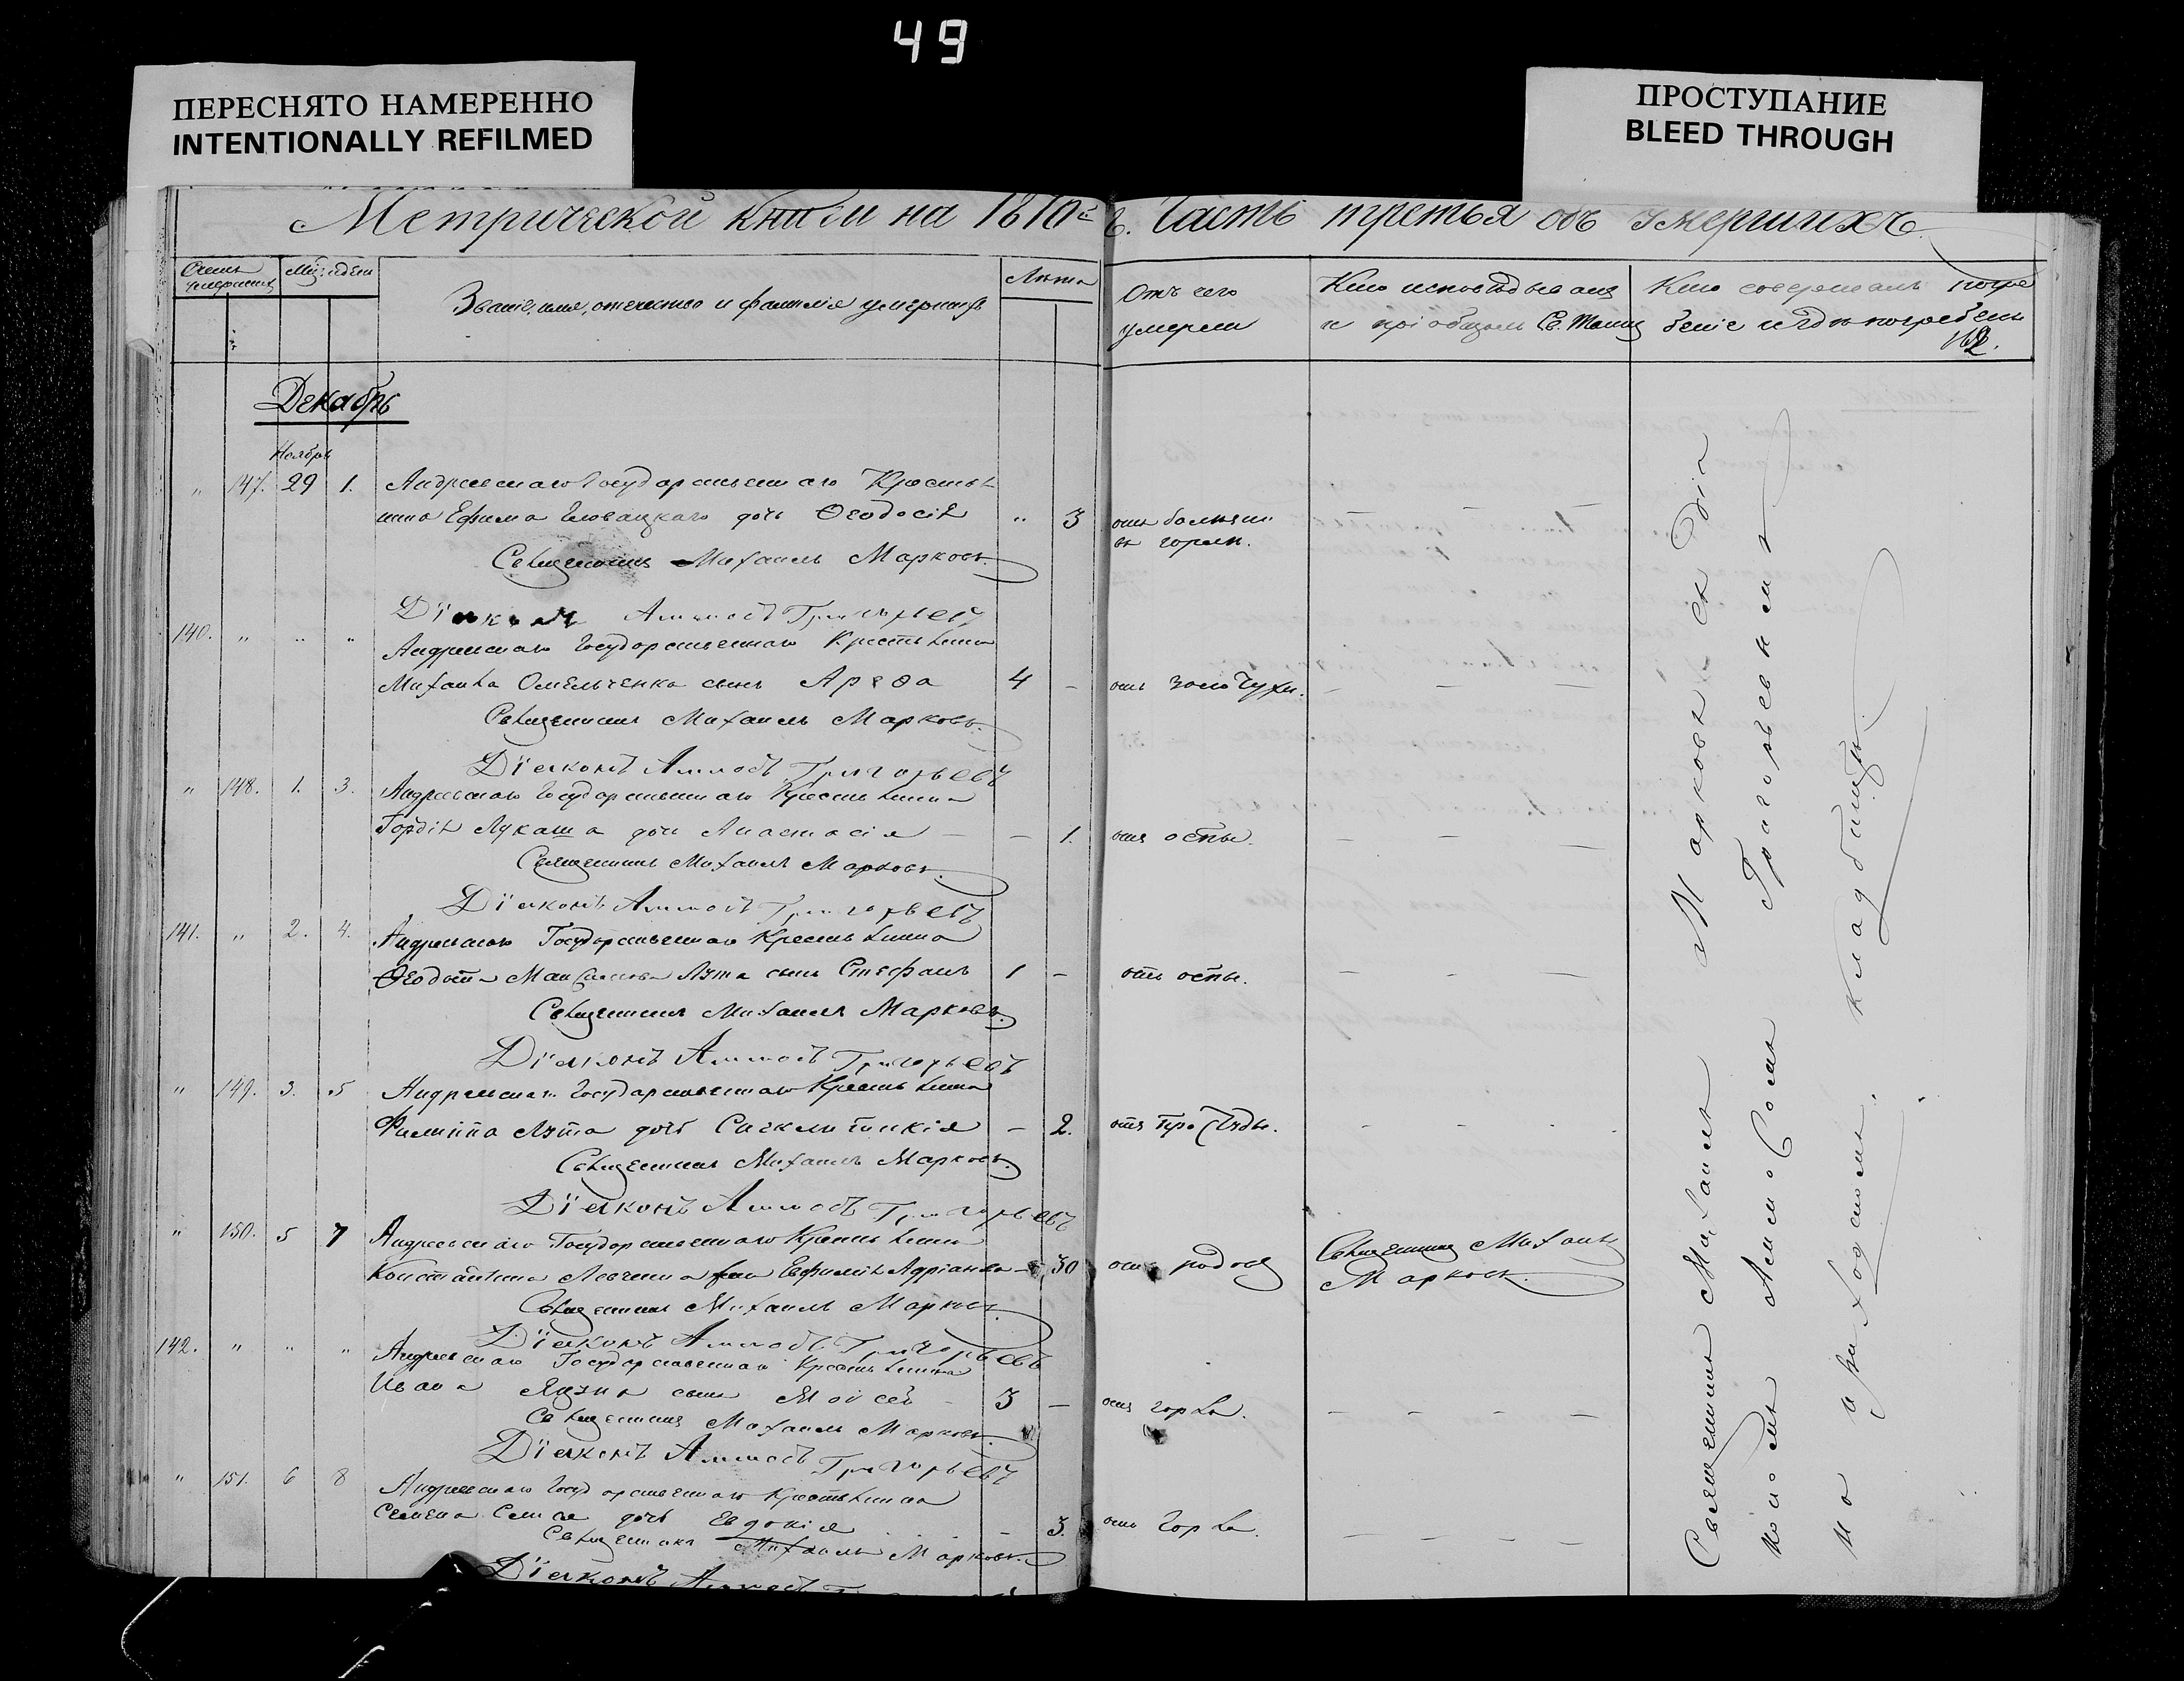 49
ПЕРЕСНЯТО НАМЕРЕННО
INTENTIONALLY REFILMED
ПРОСТУПАНИЕ
BLEED THROUGH
Метрической книги на 1870й г. Часть третья объ умершихъ
Счетъ умершихъ
Мѣс. и день
Званіе, имя, отчество и фамилія умершихъ
Лѣта
Отъ чего
умерли
Кто исповѣдывалъ
и пріобщалъ Св. Таинъ
Кто совершалъ погре
беніе и гдѣ погребены
162.
Декабрь
Ноября
" 147. 29 1. Андреевскаго Государственнаго Крестья
нина Ефима дочь Ѳеодосія " 3 отъ болѣзни
въ горлѣ.
Священникъ Михаилъ Марковъ.
Діаконъ Григорьевъ
140. " " " Андреевскаго Государственнаго Крестьянина
Михаила Омельченка сынъ Ареѳа 4 – отъ золотухи. – – –
Священникъ Михаилъ Марковъ.
Діаконъ Григорьевъ
" 148. 1. 3. Андреевскаго Государственнаго Крестьянина
Гордія Лукаша дочь Анастасія – – 1. отъ оспы. – – –
Священникъ Михаилъ Марковъ.
Діаконъ Григорьевъ
141. " 2. 4. Андреевскаго Государственнаго Крестьянина
Ѳеодота сынъ Стефанъ 1 – отъ оспы. – – –
Священникъ Михаилъ Марковъ.
Діаконъ Григорьевъ
" 149. 3. 5 Андреевскаго Государственнаго Крестьянина
Филиппа дочь Сигклитикія – 2. отъ простуды. – – –
Священникъ Михаилъ Марковъ.
Діаконъ Григорьевъ
" 150. 5 7 Андреевскаго Государственнаго Крестьянина
Константина жена Евфимія Адріанова – 30 отъ родовъ Священникъ Михаилъ
Марковъ.
Священникъ Михаилъ Марковъ
Діаконъ Григорьевъ
142. " " " Андреевскаго Государственнаго Крестьянина
Ивана сынъ Моисей – 3 – отъ горла. – – – –
Священникъ Михаилъ Марковъ.
Діаконъ Григорьевъ
" 151. 6 8 Андреевскаго Государственнаго Крестьянина
Семена дочь Евдокія – 3. отъ горла. – – – –
Священникъ Михаилъ Марковъ.
Діаконъ
Священникъ Михаилъ Марковъ съ Діа
кономъ Григорьевымъ
на приходскомъ кладбищѣ.